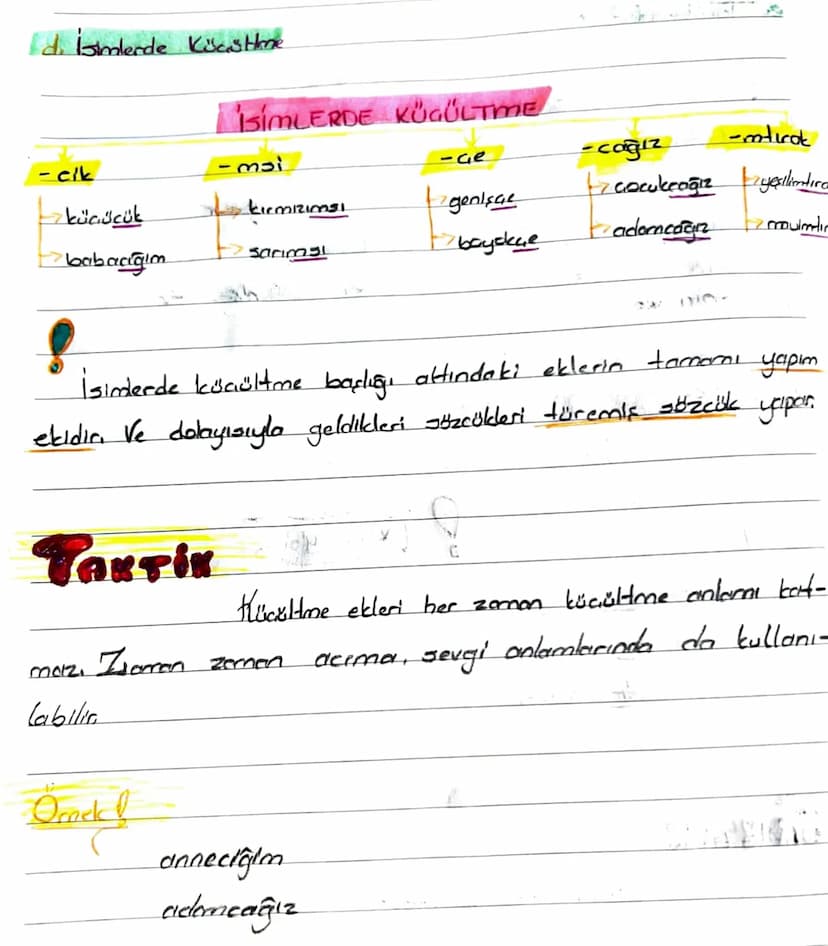 d. İsimlerde Küçültme
İSİMLERDE KÜÇÜLTME
-cik -msi -ce -cağız -mtırak
küçücük kırmızımsı genişçe çocukcağız yeşilimtıra
babacığım sarımsı boyokçe adamcağız mavimtır
İsimlerde küçültme başlığı altındaki eklerin tamamı yapım
ekidir. Ve dolayısıyla geldikleri sözcükleri türemiş sözcük yapar.
TAKTİK
Küçültme ekleri her zaman küçültme anlamı kat-
maz. Zaman zaman acıma, sevgi anlamlarında da kullanı-
labilir.
Örnek!
anneciğim
adamcağız